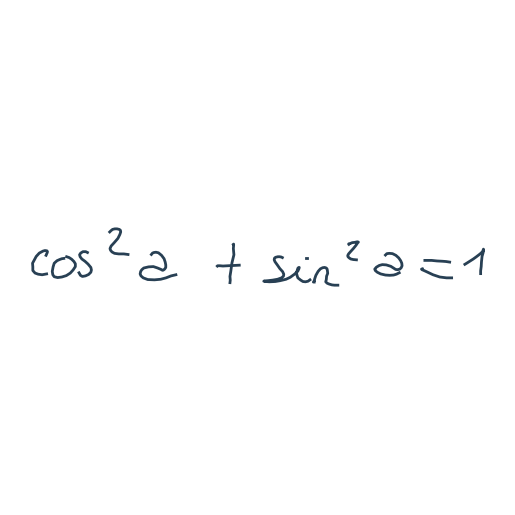 cos² a + sin² a = 1